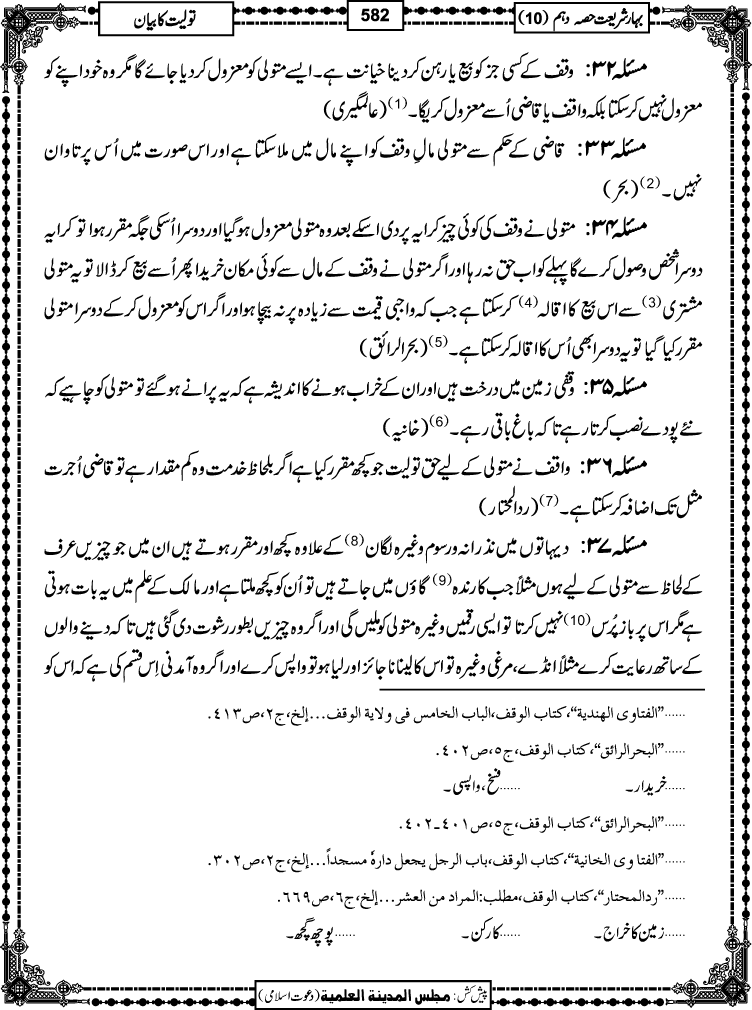 بہار شریعت حصہ دہم (10)
582
تولیت کا بیان
مسئلہ ۳۲: وقف کے کسی جز کو بیع یا رہن کر دینا خیانت ہے۔ ایسے متولی کو معزول کر دیا جائے گا مگر وہ خود اپنے کو
معزول نہیں کر سکتا بلکہ واقف یا قاضی اُسے معزول کریگا۔(1) (عالمگیری)
مسئلہ ۳۳: قاضی کے حکم سے متولی مالِ وقف کو اپنے مال میں ملا سکتا ہے اور اس صورت میں اُس پر تاوان
نہیں۔(2) (بحر)
مسئلہ ۳۴: متولی نے وقف کی کوئی چیز کرایہ پر دی اسکے بعد وہ متولی معزول ہوگیا اور دوسرا اُسکی جگہ مقرر ہوا تو کرایہ
دوسرا شخص وصول کرے گا پہلے کو اب حق نہ رہا اور اگر متولی نے وقف کے مال سے کوئی مکان خریدا پھر اُسے بیع کر ڈالا تو یہ متولی
مشتری(3) سے اس بیع کا اقالہ(4) کر سکتا ہے جب کہ واجبی قیمت سے زیادہ پر نہ بیچا ہو اور اگر اس کو معزول کر کے دوسرا متولی
مقرر کیا گیا تو یہ دوسرا بھی اُس کا اقالہ کر سکتا ہے۔(5) (بحرالرائق)
مسئلہ ۳۵: وقفی زمین میں درخت ہیں اور ان کے خراب ہونے کا اندیشہ ہے کہ یہ پرانے ہوگئے تو متولی کو چاہیے کہ
نئے پودے نصب کرتا رہے تاکہ باغ باقی رہے۔(6) (خانیہ)
مسئلہ ۳۶: واقف نے متولی کے لیے حق تولیت جو کچھ مقرر کیا ہے اگر بلحاظ خدمت وہ کم مقدار ہے تو قاضی اُجرت
مثل تک اضافہ کر سکتا ہے۔(7) (ردالمحتار)
مسئلہ ۳۷: دیہاتوں میں نذرانہ و رسوم وغیرہ لگان(8) کے علاوہ کچھ اور مقرر ہوتے ہیں ان میں جو چیزیں عرف
کے لحاظ سے متولی کے لیے ہوں مثلاً جب کارندہ(9) گاؤں میں جاتے ہیں تو اُن کو کچھ ملتا ہے اور مالک کے علم میں یہ بات ہوتی
ہے مگر اس پر باز پُرس(10) نہیں کرتا تو ایسی رقمیں وغیرہ متولی کو ملیں گی اور اگر وہ چیزیں بطور رشوت دی گئی ہیں تاکہ دینے والوں
کے ساتھ رعایت کرے مثلاً انڈے، مرغی وغیرہ تو اس کا لینا ناجائز اور لیا ہو تو واپس کرے اور اگر وہ آمدنی اِس قسم کی ہے کہ اس کو
......"الفتاوی الھندیة"،کتاب الوقف،الباب الخامس فی ولایة الوقف...إلخ،ج۲،ص۴۱۳.
......"البحرالرائق"،کتاب الوقف،ج۵،ص۴۰۲.
......خریدار۔ ......فسخ، واپسی۔
......"البحرالرائق"،کتاب الوقف،ج۵،ص۴۰۱-۴۰۲.
......"الفتاوی الخانیة"،کتاب الوقف،باب الرجل یجعل دارهٗ مسجداً...إلخ،ج۲،ص۳۰۲.
......"ردالمحتار"،کتاب الوقف،مطلب:المراد من العشر...إلخ،ج۶،ص۶۶۹.
......زمین کا خراج۔ ......کارکن۔ ......پوچھ گچھ۔
پیش کش: مجلس المدینة العلمیة (دعوت اسلامی)